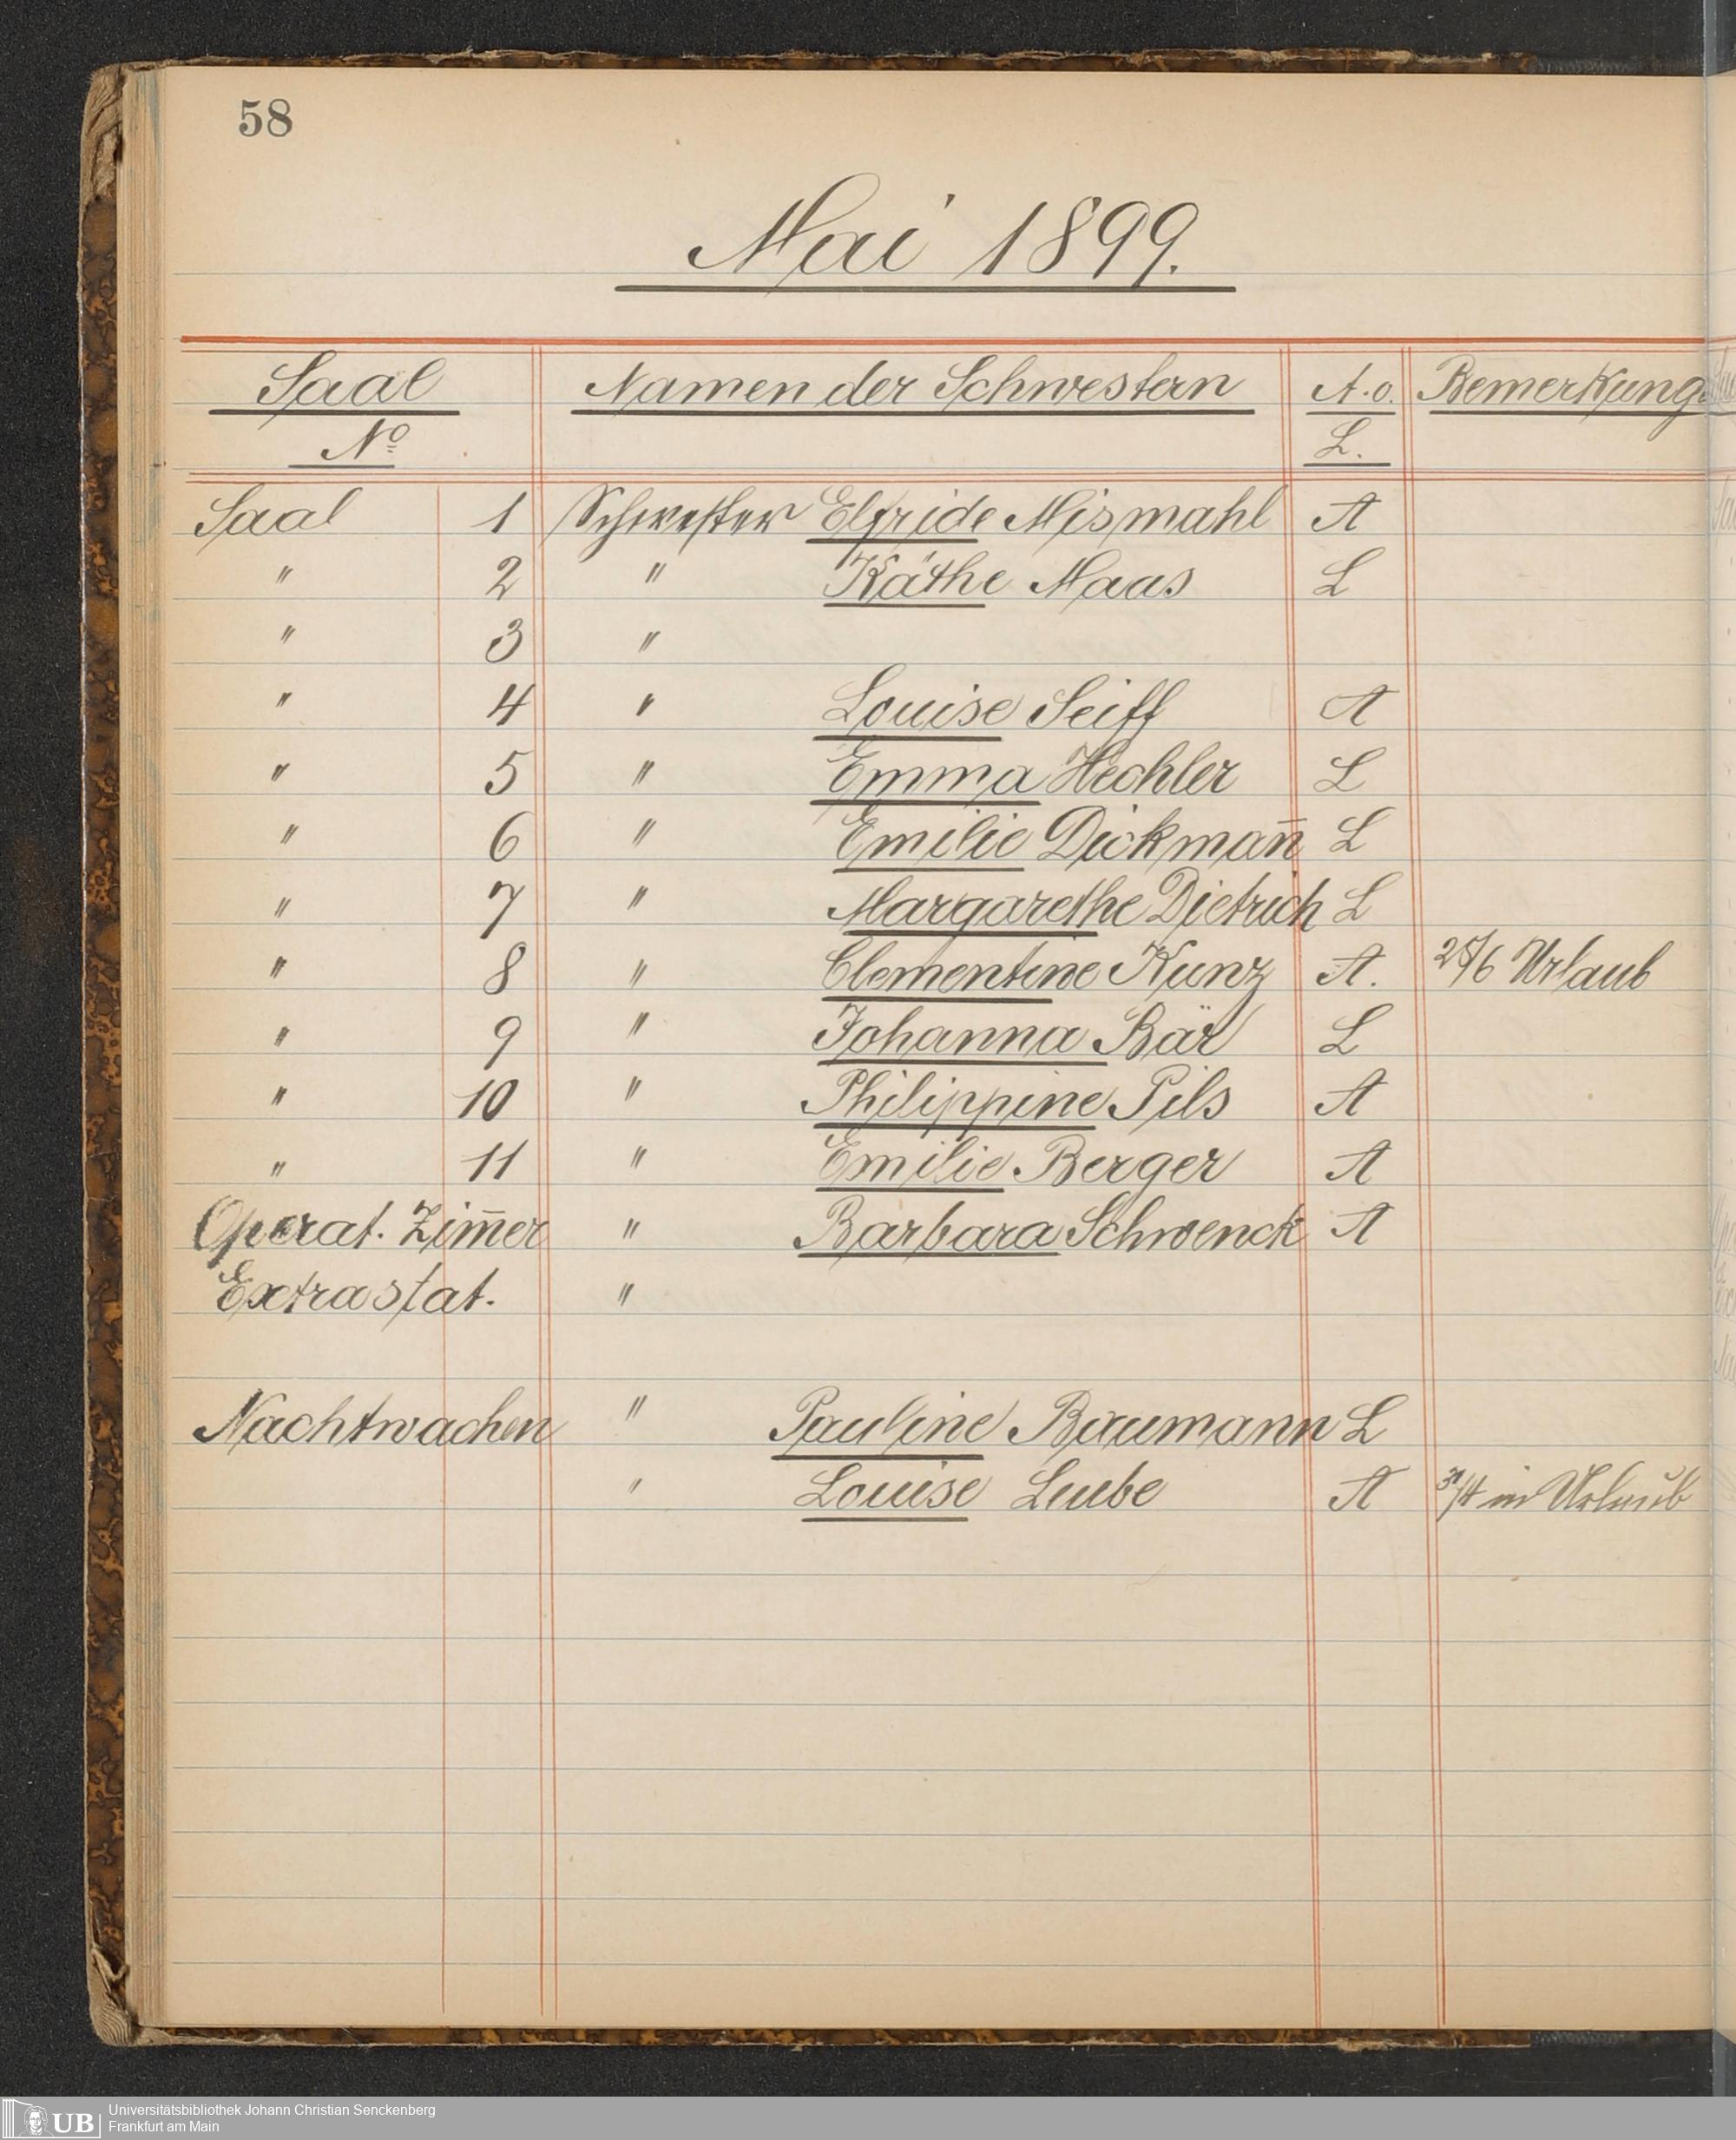 58
Mai 1899.
Saal Namen der Schwestern A. o. Bemerkung.
No L.
Saal 1 Schwester Elfride Mismahl A
" 2 " Käthe Maas L
" 3 "
" 4 " Louise Seiff A
" 5 " Emma Hechler L
" 6 " Emilie Dickman̄ L
" 7 " Margarethe Dietrich L
" 8 " Clementine Kunz A. Urlaub
" 9 " Johanna Bär L
" 10 " Philippine Pils A
" 11 " Emilie Berger A
Operat. Zim̄er " Barbara Schwenck A
Extrastat. "
Nachtwachen " Pauline Baumann L
" Louise Leube A in Urlaub
UB Universitätsbibliothek Johann Christian Senckenberg
Frankfurt am Main